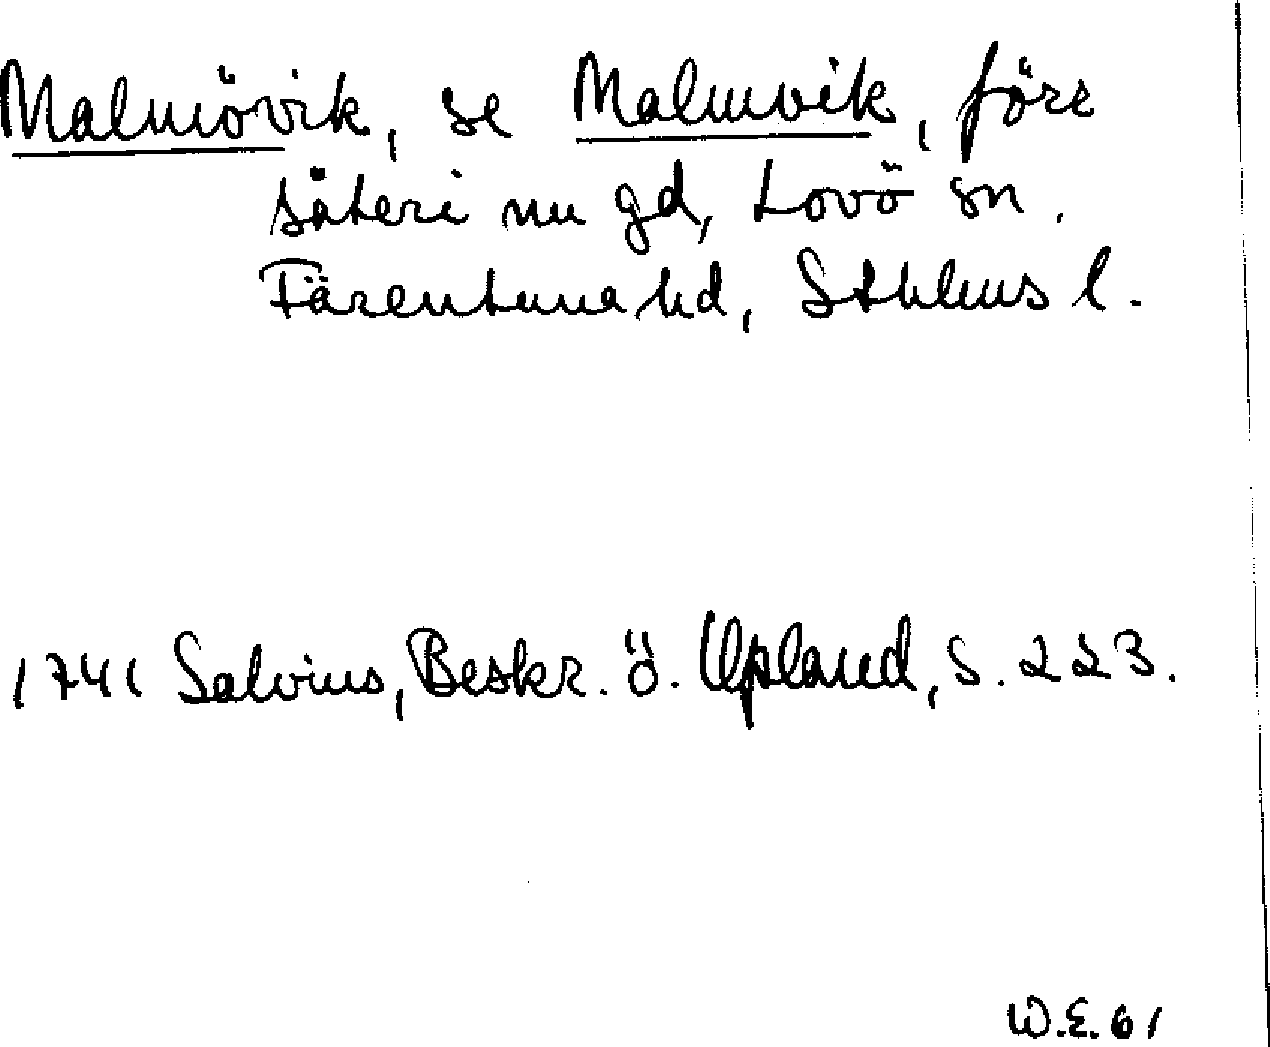 Malmövik, se Malmvik, förr
säteri nu gd, Lovö sn.
Färentuna hd, Sthlms l.
1741 Salvius, Beskr. ö. Upland, S. 223.
W.E. 61